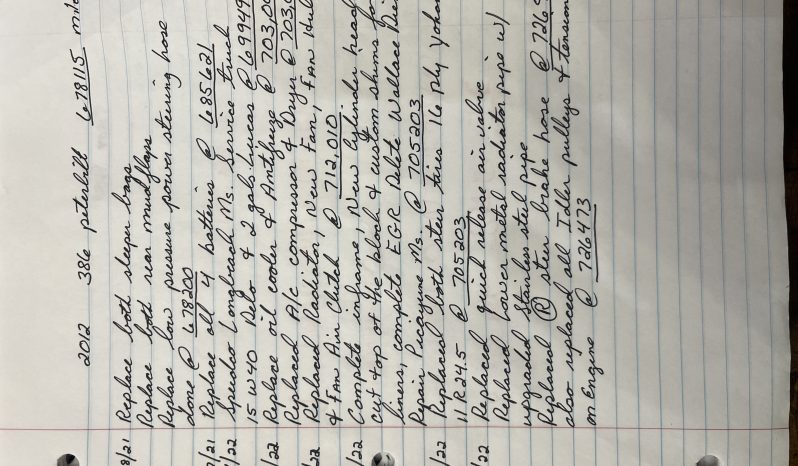 2012 386 peterbilt 678115
8/21 Replace both sleeper bags
Replace both rear mudflaps
Replace low pressure power steering hose
done @ 678200
/21 Replace all 4 batteries @ 685621
/22 Speedco Longbeach Ms. Service truck
15 W40 Delo & 2 gals Lucas @ 69949
/22 Replace oil cooler & Antifreeze @ 703,00
Replaced A/c compressor & Dryer @ 703,0
/22 Replaced Radiator, New Fan, Fan Hub
& Fan Air Clutch @ 712,010
/22 Complete inframe, New Cylinder head
cut top of the block & custom shims
liners, complete EGR Delete Wallace
Repair Picayune Ms. @ 705203
/22 Replaced both steer tires 16 ply
11R24.5 @ 705203
/22 Replaced quick release air valve
Replaced Lower metal radiator pipe w/
upgraded Stainless steel pipe
Replaced R steer brake hose @ 726
also replaced all Idler pulleys &
on Engine @ 726473